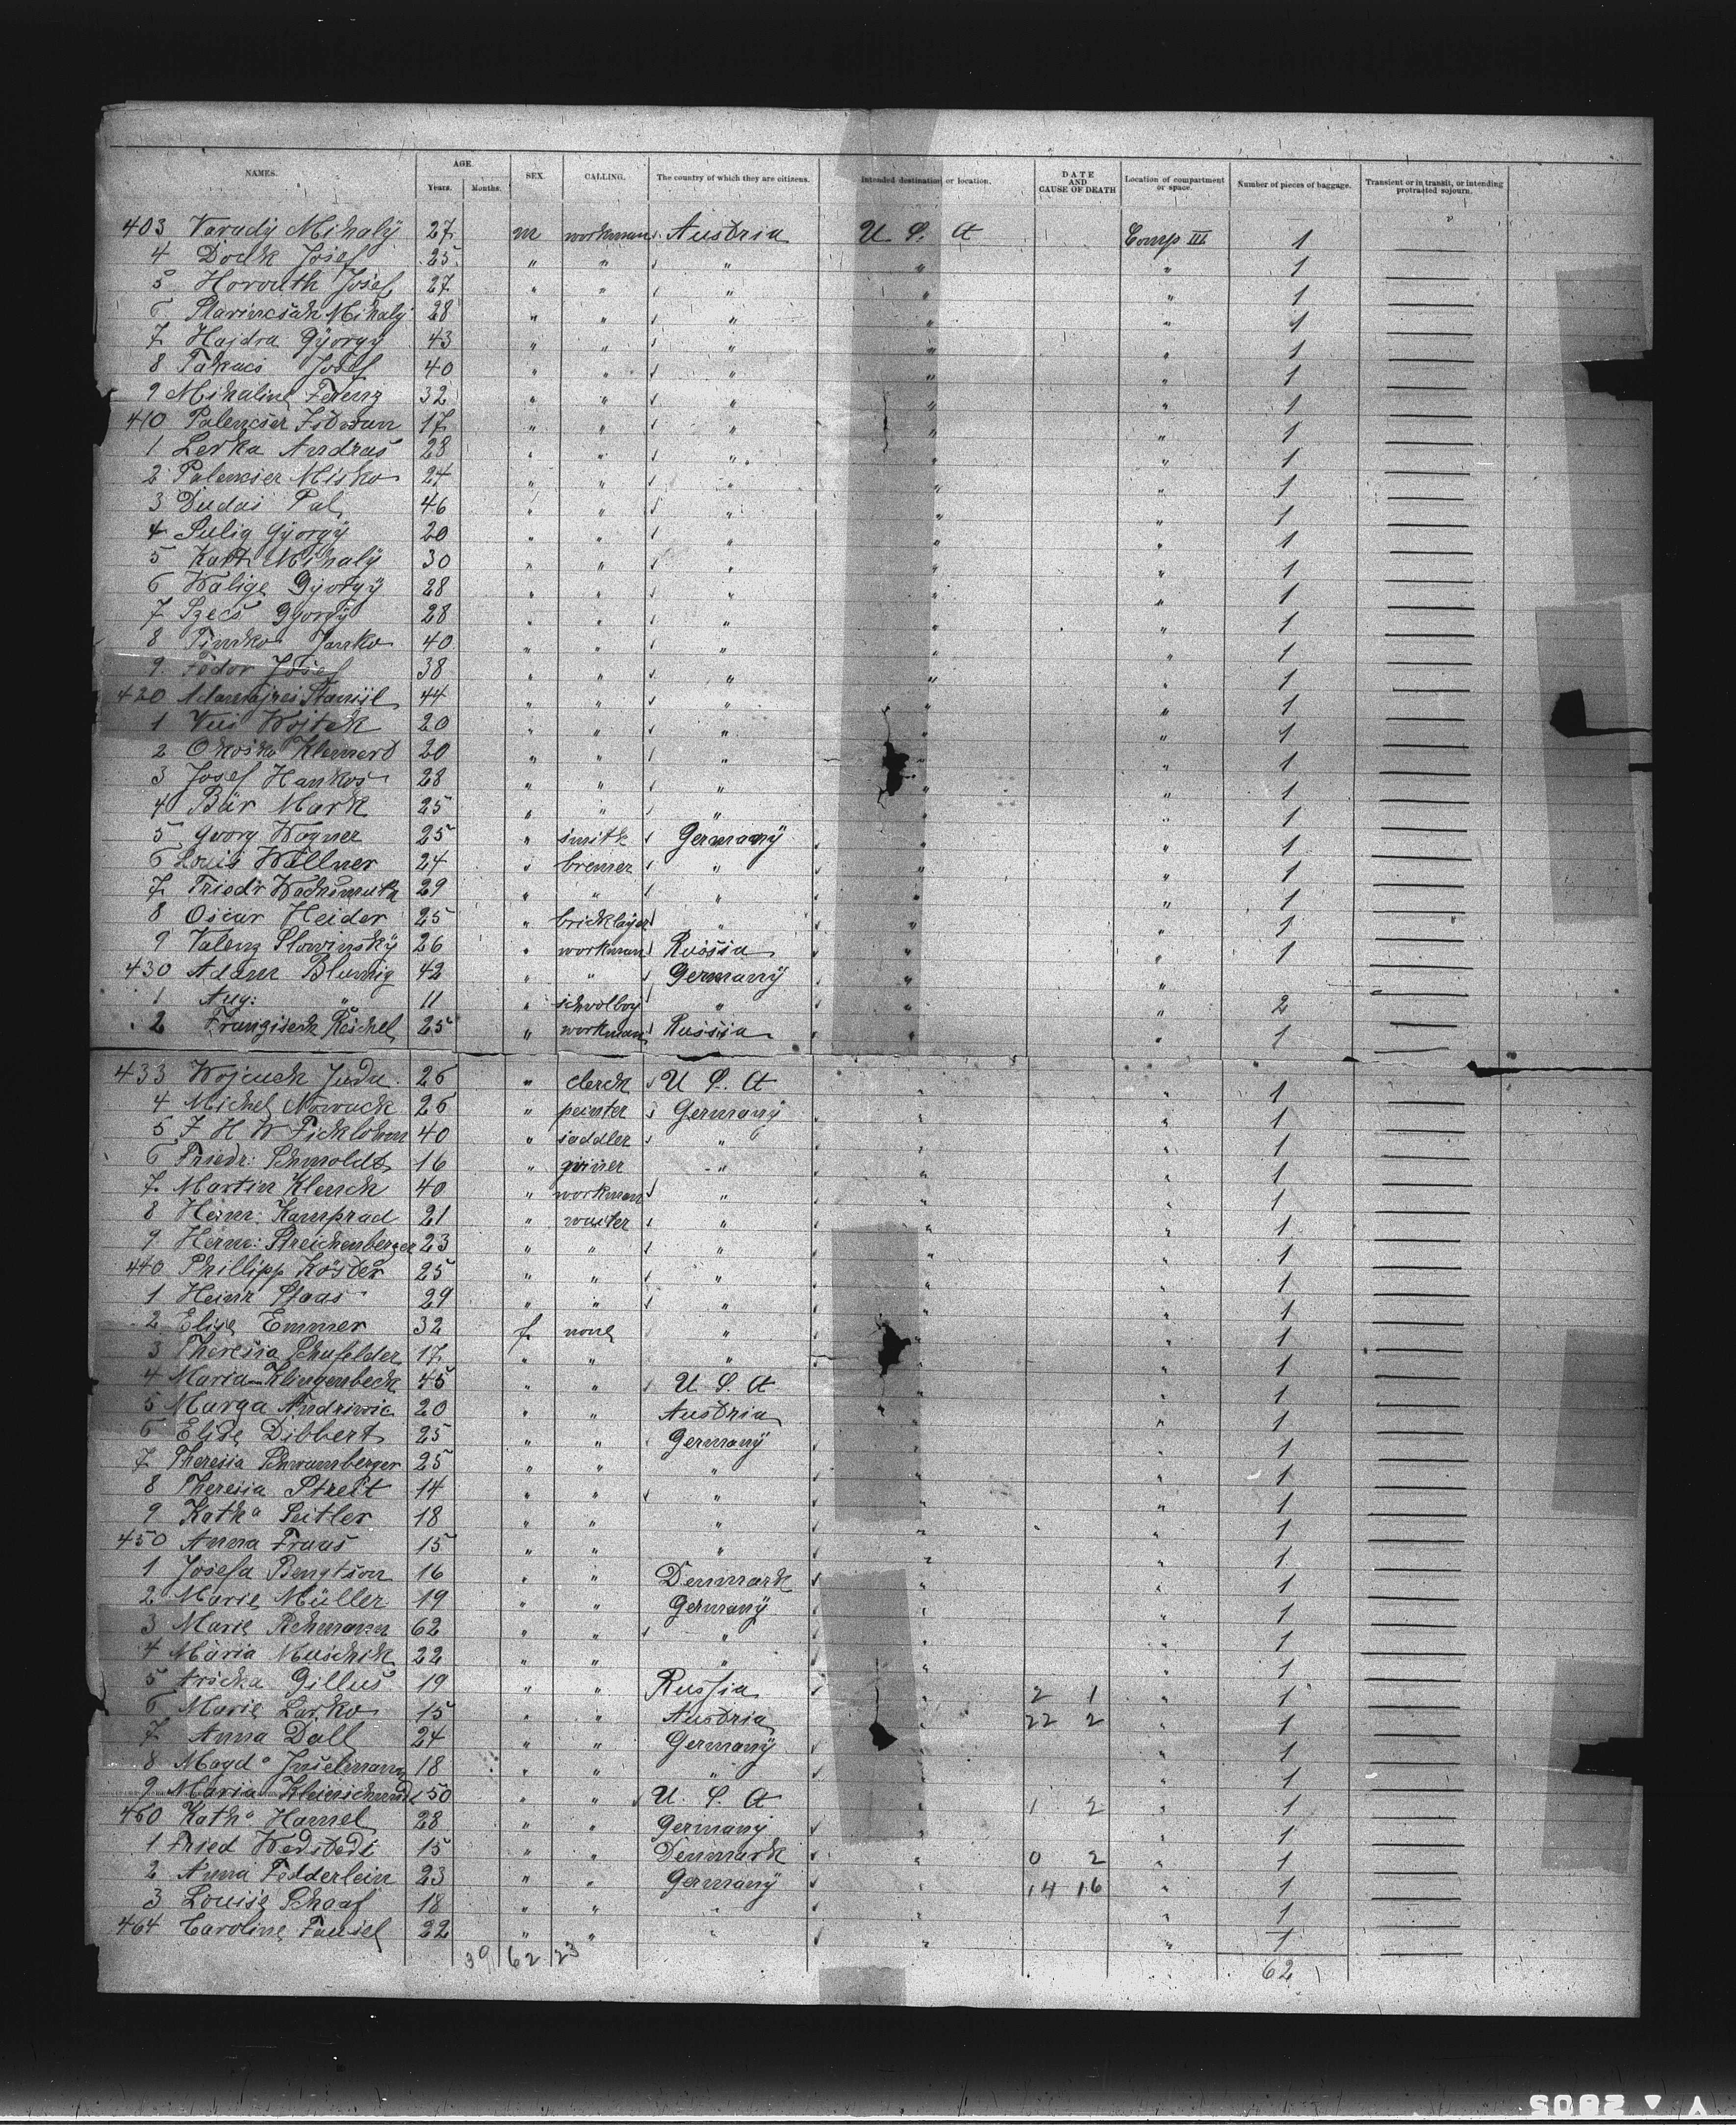 NAMES. AGE. Years. Months. SEX. CALLING. The country of which they are citizens. Intended destination or location. DATE AND CAUSE OF DEATH Location of compartment or space. Number of pieces of baggage. Transient or in transit, or intending protracted sojourn.
403 Varady Mihalÿ 27 m workman Austria U. S. A Comp III 1
4 Josef 25 " " " " " 1
5 Horvath Josef 27 " " " " " 1
6 Mihalÿ 28 " " " " " 1
7 Hajdra György 43 " " " " " 1
8 Takacs Josef 40 " " " " " 1
9 Mihaline Ferenz 32 " " " " " 1
410 Palencser 17 " " " " " 1
1 Leska Andras 28 " " " " " 1
2 Palencser Misko 24 " " " " " 1
3 Dudas Pal 46 " " " " " 1
4 Sulig Györgÿ 20 " " " " " 1
5 Mihalÿ 30 " " " " " 1
6 Walige Györgÿ 28 " " " " " 1
7 Szecs Györgÿ 28 " " " " " 1
8 Timko Janko 40 " " " " " 1
9 Fedor Josef 38 " " " " " 1
420 44 " " " " " 1
1 Wojtek 20 " " " " " 1
2 20 " " " " " 1
3 Josef Hankos 28 " " " " " 1
4 Bär Mark 25 " " " " " 1
5 Georg Wagner 25 " smith Germanÿ " " 1
6 Louis Wöllner 24 " bremer " " " 1
7 Friedr Wachsmuth 29 " " " " " 1
8 Oscar Heider 25 " bricklayer " " " 1
9 Valenz Slowinskÿ 26 " workman Russia " " 1
430 Adam Blumig 42 " " Germanÿ " "
1 Aug: " 11 " schoolboy " " " 2
2 Franzisek Reichel 25 " workman Russia " " 1
433 Wojcuck Juda 26 " clerck U. S. A " " 1
4 Michel Nowack 26 " peinter Germanÿ " " 1
5 F H W 40 " saddler " " " 1
6 Friedr: Schmoldt 16 " " " " 1
7 Martin Klenck 40 " workman " " " 1
8 Heinr: Kamprad 21 " waiter " " " 1
9 Herm: Streichenberger 23 " " " " " 1
440 Phillipp Köster 25 " " " " " 1
1 Heinr Staas 29 " " " " " 1
2 Elise Emmer 32 f none " " " 1
3 Theresia Schufelder 17 " " " " " 1
4 Maria Klingenbeck 45 " " U. S. A " " 1
5 Marga 20 " " Austria " " 1
6 Elise Dibbert 25 " " Germanÿ " " 1
7 Theresia Schwamberger 25 " " " " " 1
8 Theresia Streit 14 " " " " " 1
9 Kath<sup>a</sup> Seitler 18 " " " " " 1
450 Anna Fraas 15 " " " " " 1
1 Josefa Bengtson 16 " " Denmark " " 1
2 Marie Müller 19 " " Germanÿ " " 1
3 Marie 62 " " " " " 1
4 Maria Muschik 22 " " " " " 1
5 Gillus 19 " " Russia " 2 1 " 1
6 Marie Larko 15 " " Austria " 22 2 " 1
7 Anna Dall 24 " " Germanÿ " " 1
8 Magd<sup>a</sup> Juselmann 18 " " " " " 1
9 Maria Kleinschmidt 50 " " U. S. A " 1 2 " 1
460 Kath<sup>a</sup> Hamel 28 " " Germanÿ " " 1
1 Fried 15 " " Denmark " 0 2 " 1
2 Anna Fedderlein 23 " " Germanÿ " 14 16 " 1
3 Louise Schaaf 18 " " " " " 1
464 Caroline Fausel 22 " " " " " 1
39 62 23 62